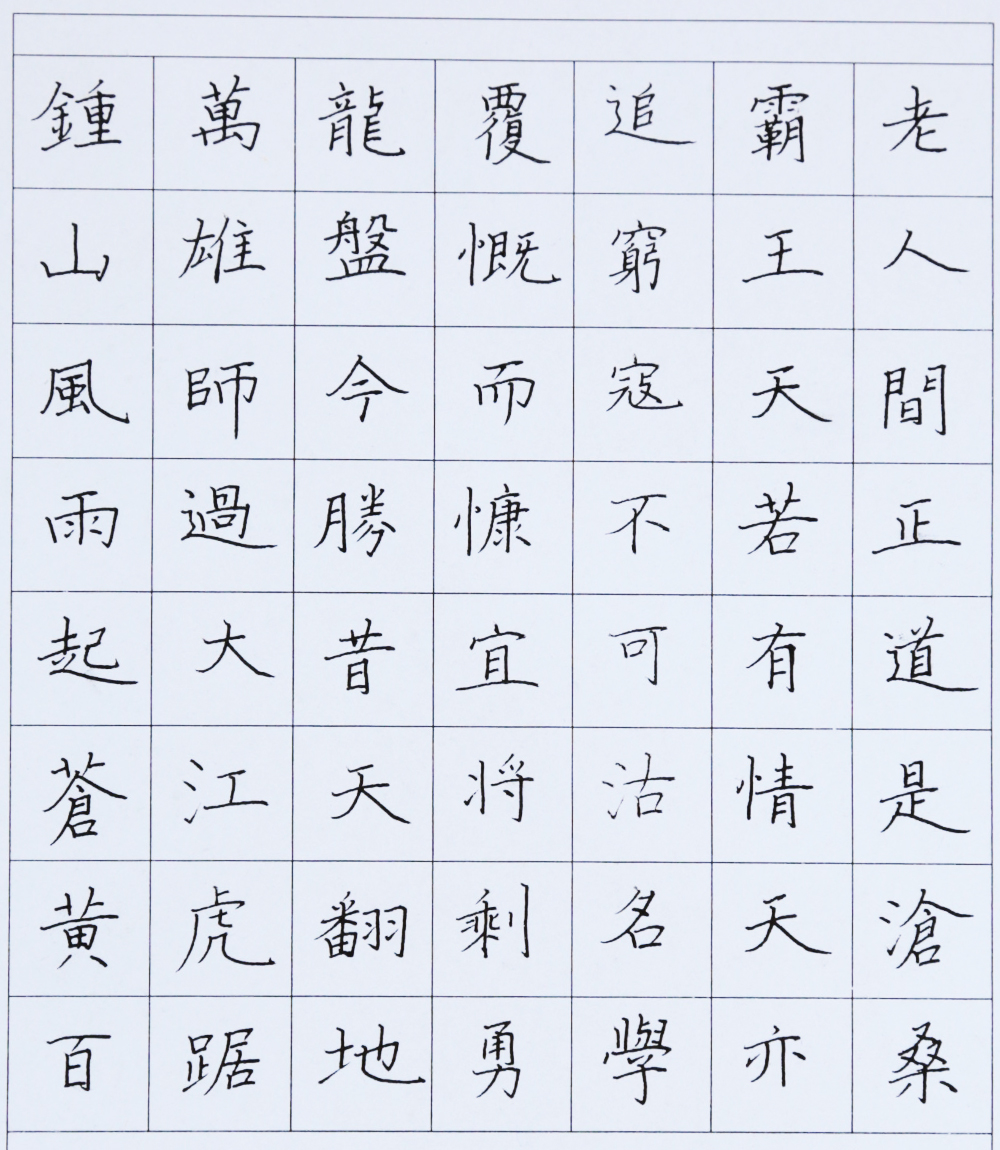 鍾山風雨起蒼黃百
萬雄師過大江虎踞
龍盤今勝昔天翻地
覆慨而慷宜将剩勇
追窮寇不可沽名學
霸王天若有情天亦
老人間正道是滄桑